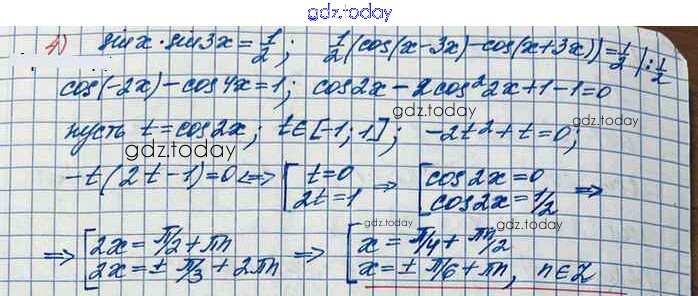 gdz.today
4) sin x · sin 3x = 1/2 ; 1/2 (cos(x-3x) - cos(x+3x)) = 1/2 | : 1/2
cos(-2x) - cos 4x = 1 ; cos 2x - 2 cos² 2x + 1 - 1 = 0
gdz.today
пусть t = cos 2x ; t ∈ [-1; 1] ; -2t² + t = 0 ;
gdz.today
-t(2t-1) = 0 <=> [ t = 0 => [ cos 2x = 0 =>
2t = 1 cos 2x = 1/2
gdz.today gdz.today
=> [ 2x = π/2 + πn => [ x = π/4 + πn/2
2x = ± π/3 + 2πn x = ± π/6 + πn, n ∈ Z